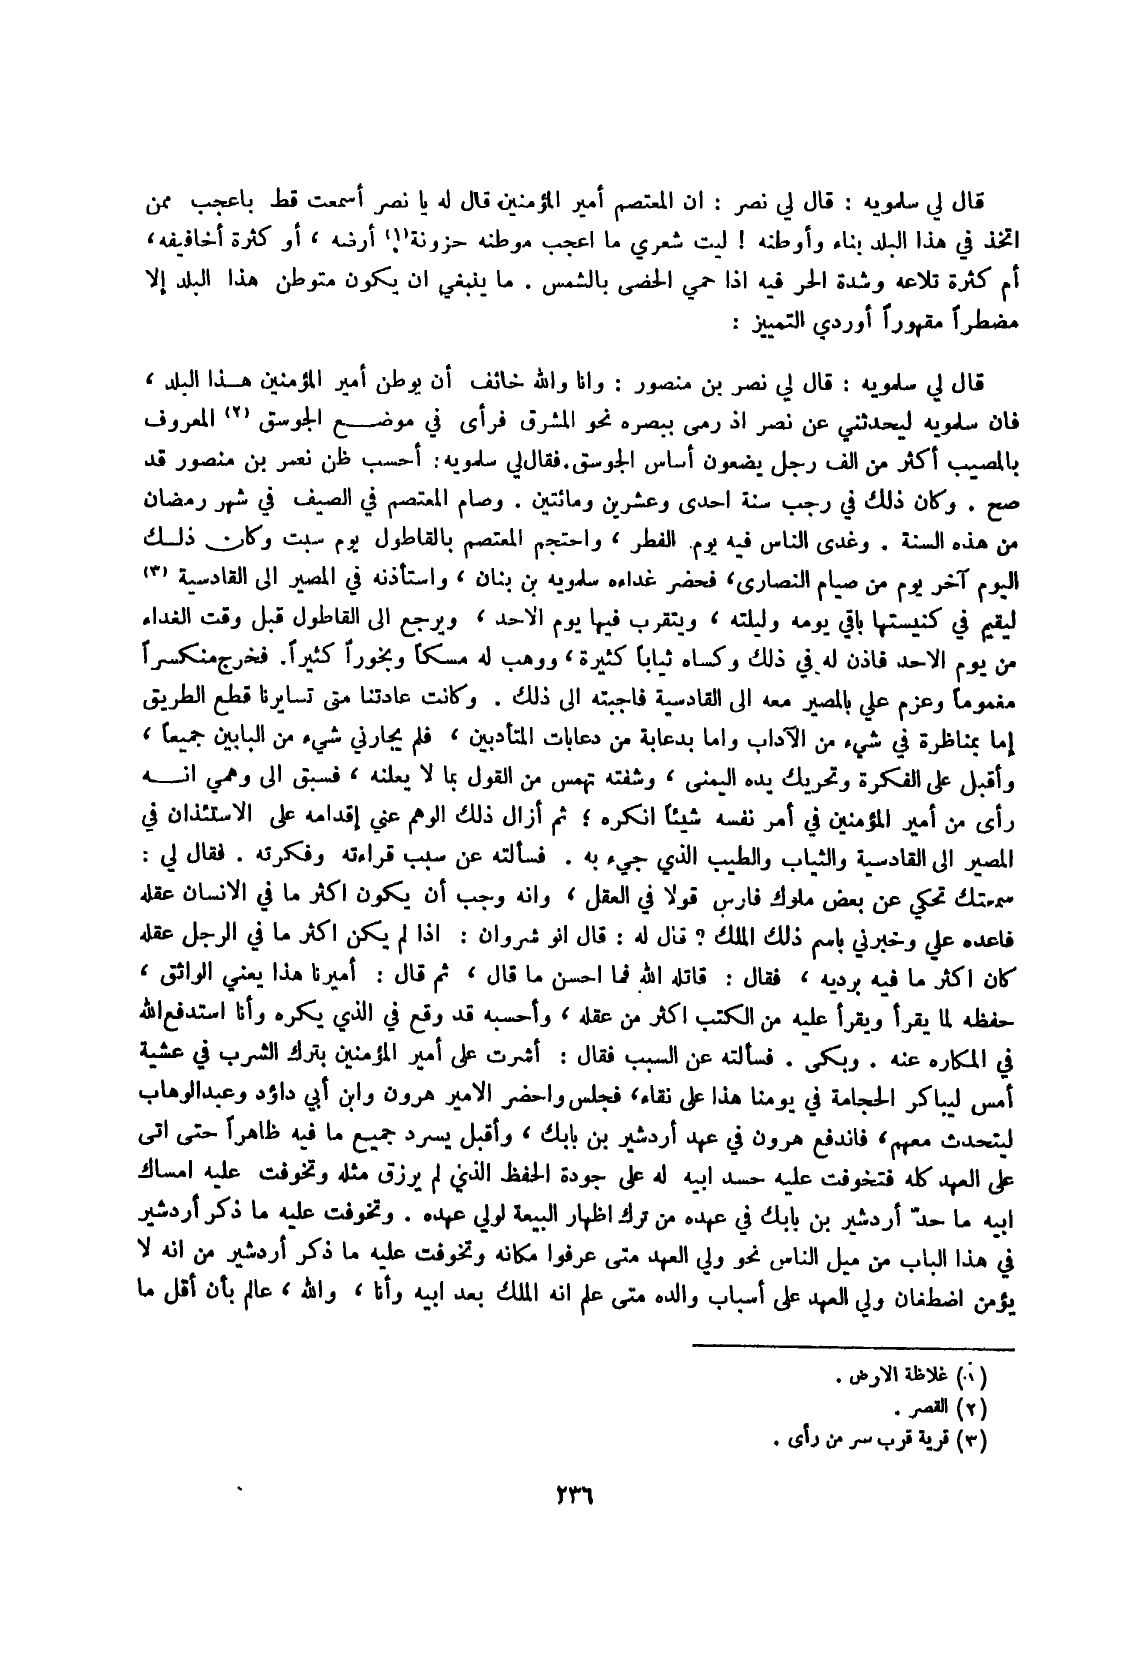 قال لي سلمويه : قال لي نصر : ان المعتصم أمير المؤمنين قال له يا نصر أسمعت قط باعجب ممن
اتخذ في هذا البلد بناء وأوطنه ! ليت شعري ما اعجب موطنه حزونة(١) أرضه ، أو كثرة أخافيفه،
أم كثرة تلاعه وشدة الحر فيه اذا حمي الحضى بالشمس . ما ينبغي ان يكون متوطن هذا البلد إلا
مضطراً مقهوراً أوردي التمييز :
قال لي سلمويه : قال لي نصر بن منصور : وانا والله خائف أن يوطن أمير المؤمنين هــذا البلد ،
فان سلمويه ليحدثني عن نصر اذ رمى ببصره نحو المشرق فرأى في موضــع الجوسق (٢) المعروف
بالمصيب أكثر من الف رجل يضعون أساس الجوسق.فقال لي سلمويه: أحسب ظن نعمر بن منصور قد
صح . وكان ذلك في رجب سنة احدى وعشرين ومائتين . وصام المعتصم في الصيف في شهر رمضان
من هذه السنة . وغدى الناس فيه يوم الفطر ، واحتجم المعتصم بالقاطول يوم سبت وكان ذلــك
اليوم آخر يوم من صيام النصارى، فحضر غداءه سلمويه بن بنان ، واستأذنه في المصير الى القادسية (٣)
ليقيم في كنيستها باقي يومه وليلته ، ويتقرب فيها يوم الاحد ، ويرجع الى القاطول قبل وقت الغداء
من يوم الاحد فاذن له في ذلك وكساه ثياباً كثيرة، ووهب له مسكاً وبخوراً كثيراً. فخرج منكسراً
مغموماً وعزم علي بالمصير معه الى القادسية فاجبته الى ذلك . وكانت عادتنا متى تسايرنا قطع الطريق
إما بمناظرة في شيء من الآداب واما بدعابة من دعابات المتأدبين ، فلم يجارني شيء من البابين جميعاً ،
وأقبل على الفكرة وتحريك يده اليمنى ، وشفته تهمس من القول بما لا يعلنه ، فسبق الى وهمي انــه
رأى من أمير المؤمنين في أمر نفسه شيئاً انكره ؛ ثم أزال ذلك الوهم عني إقدامه على الاستئذان في
المصير الى القادسية والثياب والطيب الذي جيء به . فسألته عن سبب قراءته وفكرته . فقال لي :
سمعتك تحكي عن بعض ملوك فارس قولا في العقل ، وانه وجب أن يكون اكثر ما في الانسان عقله
فاعده علي وخبرني باسم ذلك الملك ؟ قال له : قال انو شروان : اذا لم يكن اكثر ما في الرجل عقله
كان اكثر ما فيه يرديه ، فقال : قاتله الله فما احسن ما قال ، ثم قال : أميرنا هذا يعني الواثق ،
حفظه لما يقرأ ويقرأ عليه من الكتب اكثر من عقله ، وأحسبه قد وقع في الذي يكره وأنا استدفع الله
في المكاره عنه . وبكى . فسألته عن السبب فقال : أشرت على أمير المؤمنين بترك الشرب في عشية
أمس ليباكر الحجامة في يومنا هذا على نقاء، فجلس واحضر الامير هرون وابن أبي داؤد وعبدالوهاب
ليتحدث معهم، فاندفع هرون في عهد أردشير بن بابك ، وأقبل يسرد جميع ما فيه ظاهراً حتى اتى
على العهد كله فتخوفت عليه حسد ابيه له على جودة الحفظ الذي لم يرزق مثله وتخوفت عليه امساك
ابيه ما حدّ أردشير بن بابك في عهده من ترك اظهار البيعة لولي عهده . وتخوفت عليه ما ذكر أردشير
في هذا الباب من ميل الناس نحو ولي العهد متى عرفوا مكانه وتخوفت عليه ما ذكر أردشير من انه لا
يؤمن اضطغان ولي العهد على أسباب والده متى علم انه الملك بعد ابيه وأنا ، والله ، عالم بأن أقل ما
(١) غلاظة الارض .
(٢) القصر .
(٣) قرية قرب سر من رأى .
٢٣٦